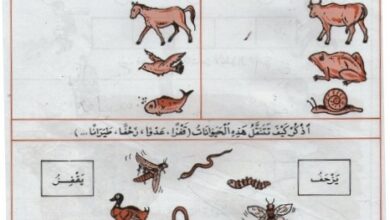 أذكر كيف تتنقل هذه الحيوانات (قفزًا، عدوًا، زحفًا، طيرانًا ... )
يزحف
يقفز